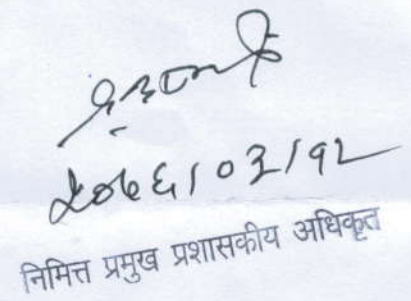 २०७६/०३/१२
निमित्त प्रमुख प्रशासकीय अधिकृत